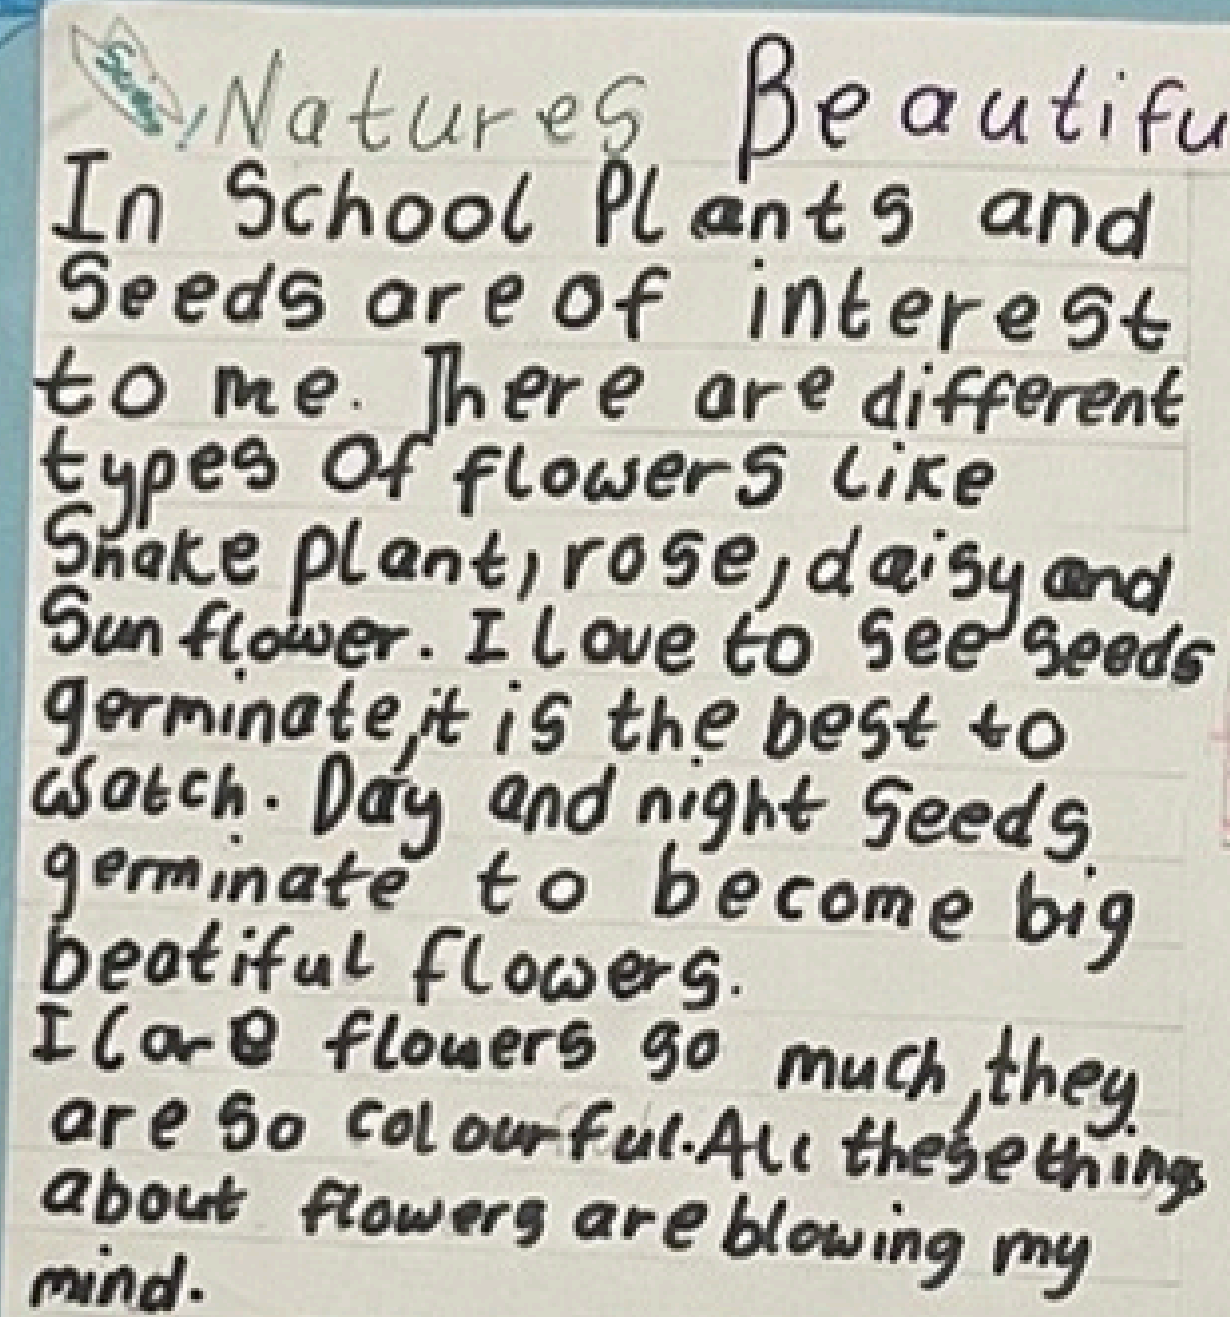 Natures Beautifu
In School Plants and
Seeds are of interest
to me. There are different
types Of flowers like
Snake plant, rose, daisy and
Sun flower. I love to see seeds
germinate, it is the best to
watch. Day and night seeds
germinate to become big
beatiful flowers.
I care flowers so much, they
are so colourful. All these things
about flowers are blowing my
mind.